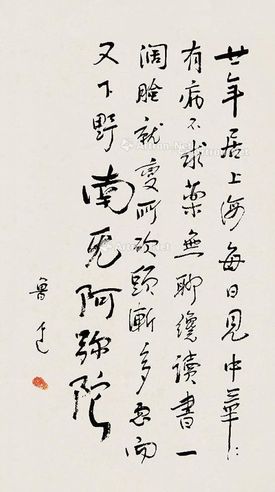 廿年居上海每日見中華：
有病不求藥無聊纔讀書一
闊臉就變所砍頭漸多忽而
又下野南无阿弥陀
魯迅